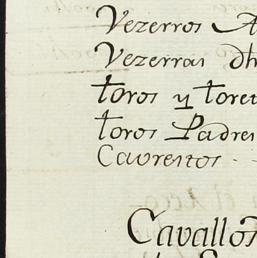 Vezerros A
Vezerras dh
toros y toret
toros Padres
Cavrestos - -
Cavallos